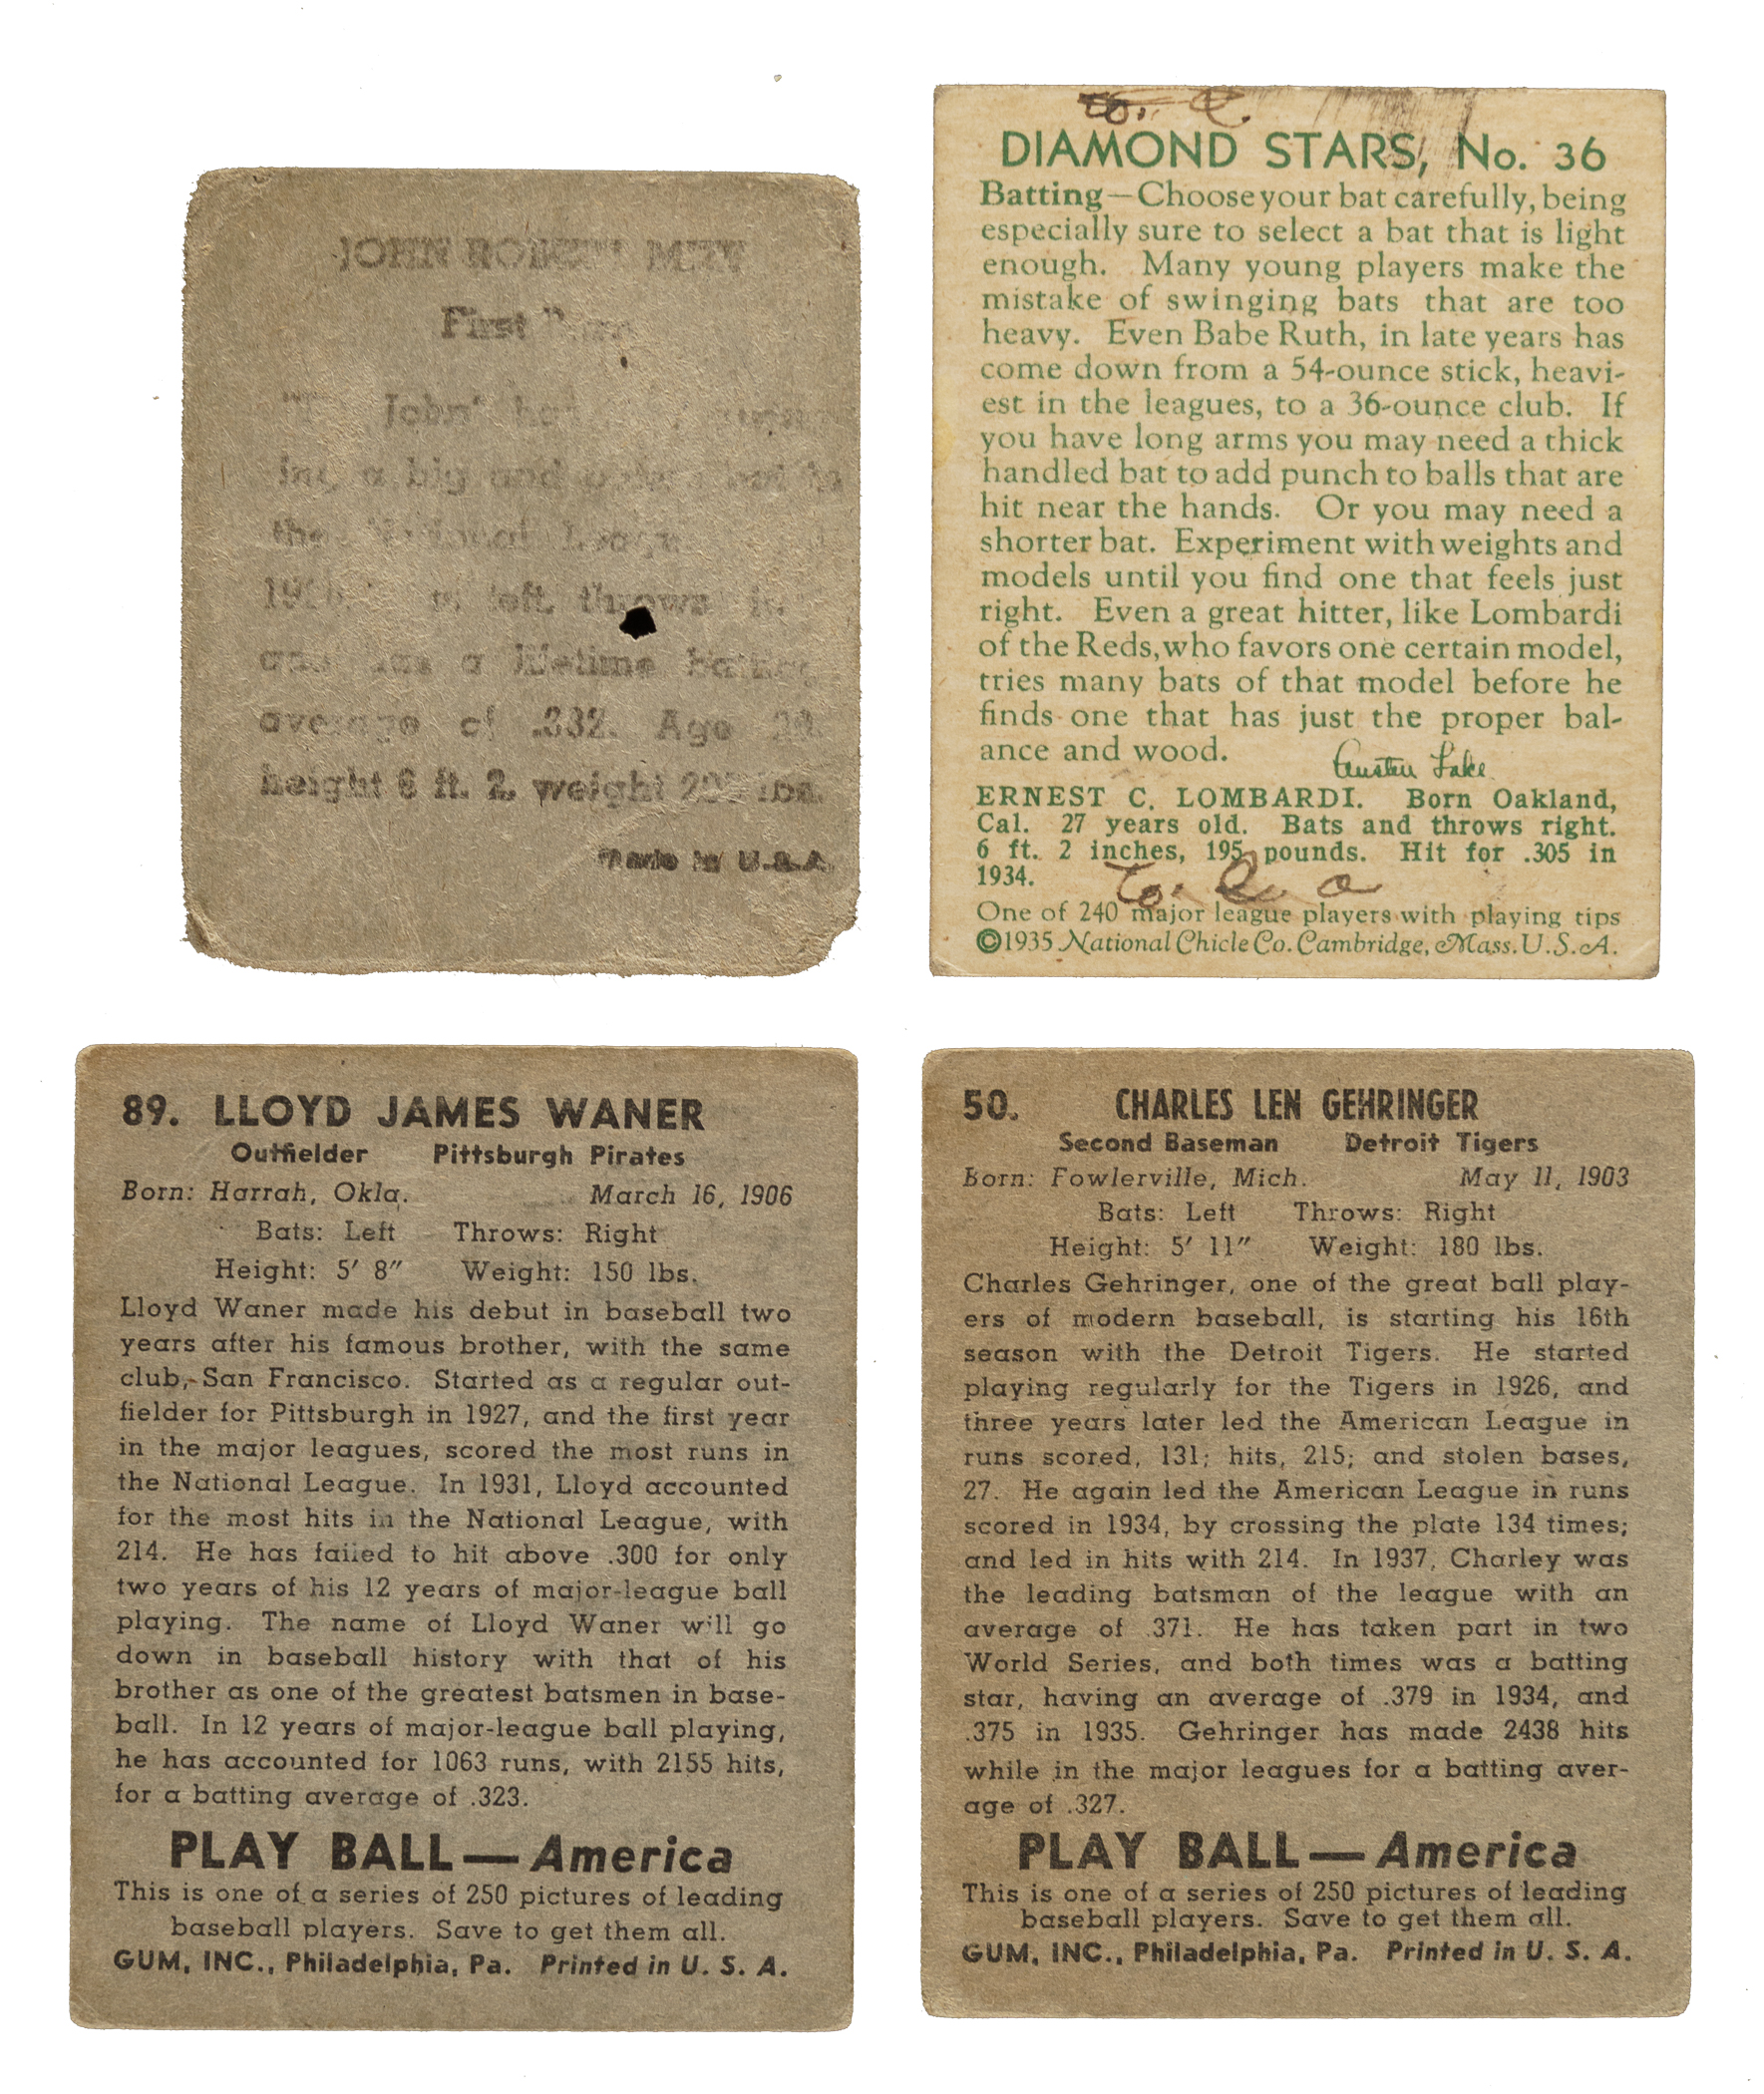 JOHN ROBERT
First
John"
a big and
the National League
left, throws
a lifetime
average of .332. Age
height 6 ft. 2, weight lbs.
Made in U.S.A.
DIAMOND STARS, No. 36
Batting—Choose your bat carefully, being
especially sure to select a bat that is light
enough. Many young players make the
mistake of swinging bats that are too
heavy. Even Babe Ruth, in late years has
come down from a 54-ounce stick, heavi-
est in the leagues, to a 36-ounce club. If
you have long arms you may need a thick
handled bat to add punch to balls that are
hit near the hands. Or you may need a
shorter bat. Experiment with weights and
models until you find one that feels just
right. Even a great hitter, like Lombardi
of the Reds, who favors one certain model,
tries many bats of that model before he
finds one that has just the proper bal-
ance and wood.
Austen Lake
ERNEST C. LOMBARDI. Born Oakland,
Cal. 27 years old. Bats and throws right.
6 ft. 2 inches, 195 pounds. Hit for .305 in
1934.
One of 240 major league players with playing tips
©1935 National Chicle Co. Cambridge, Mass. U.S.A.
89. LLOYD JAMES WANER
Outfielder Pittsburgh Pirates
Born: Harrah, Okla. March 16, 1906
Bats: Left Throws: Right
Height: 5′ 8″ Weight: 150 lbs.
Lloyd Waner made his debut in baseball two
years after his famous brother, with the same
club, San Francisco. Started as a regular out-
fielder for Pittsburgh in 1927, and the first year
in the major leagues, scored the most runs in
the National League. In 1931, Lloyd accounted
for the most hits in the National League, with
214. He has failed to hit above .300 for only
two years of his 12 years of major-league ball
playing. The name of Lloyd Waner will go
down in baseball history with that of his
brother as one of the greatest batsmen in base-
ball. In 12 years of major-league ball playing,
he has accounted for 1063 runs, with 2155 hits,
for a batting average of .323.
PLAY BALL—America
This is one of a series of 250 pictures of leading
baseball players. Save to get them all.
GUM, INC., Philadelphia, Pa. Printed in U. S. A.
50. CHARLES LEN GEHRINGER
Second Baseman Detroit Tigers
Born: Fowlerville, Mich. May 11, 1903
Bats: Left Throws: Right
Height: 5′ 11″ Weight: 180 lbs.
Charles Gehringer, one of the great ball play-
ers of modern baseball, is starting his 16th
season with the Detroit Tigers. He started
playing regularly for the Tigers in 1926, and
three years later led the American League in
runs scored, 131; hits, 215; and stolen bases,
27. He again led the American League in runs
scored in 1934, by crossing the plate 134 times;
and led in hits with 214. In 1937, Charley was
the leading batsman of the league with an
average of .371. He has taken part in two
World Series, and both times was a batting
star, having an average of .379 in 1934, and
.375 in 1935. Gehringer has made 2438 hits
while in the major leagues for a batting aver-
age of .327.
PLAY BALL—America
This is one of a series of 250 pictures of leading
baseball players. Save to get them all.
GUM, INC., Philadelphia, Pa. Printed in U. S. A.